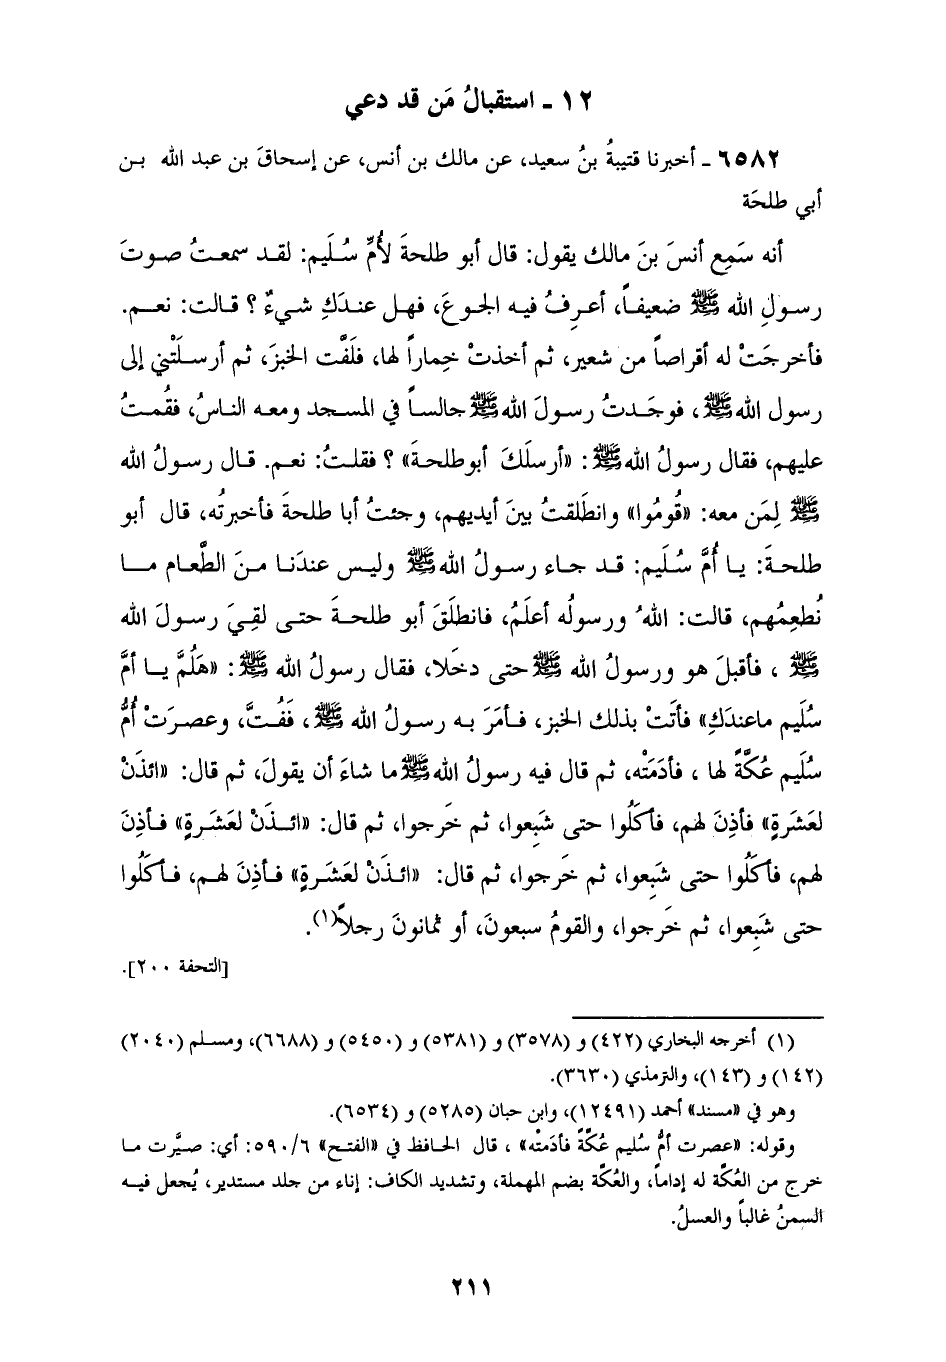 ١٢ ـ استقبالُ مَن قد دعي
٦٥٨٢ ـ أخبرنا قتيبةُ بنُ سعيد، عن مالك بن أنس، عن إسحاقَ بن عبد الله بـن
أبي طلحَة
أنه سَمِع أنسَ بنَ مالك يقول: قال أبو طلحةَ لأُمِّ سُـلَيم: لقـد سمعـتُ صـوتَ
رسـولِ الله ﷺ ضعيفـاً، أعـرِفُ فيـه الجـوعَ، فهـل عنـدَكِ شـيءٌ ؟ قـالت: نعـم.
فأخـرجَتْ له أقراصـاً مـن شعـير، ثـم أخـذتْ خِمـاراً لها، فلَفَّت الخبزَ، ثـم أرسـلَتْني إلى
رسـول الله ﷺ ، فوجَـدتُ رسـولَ الله ﷺ جالسـاً في المسـجد ومعـه النـاسُ، فقُمـتُ
عليهم، فقال رسولُ الله ﷺ : «أرسلَكَ أبوطلحـةَ» ؟ فقلـتُ: نعـم. قـال رسـولُ الله
ﷺ لِمَن معه: «قُومُوا» وانطَلقتُ بينَ أيديهـم، وجئـتُ أبـا طلحـةَ فأخبرتُـه، قـال أبو
طلحـةَ: يـا أُمَّ سُـلَيم: قـد جـاء رسـولُ الله ﷺ وليـس عندَنـا مـنَ الطَّعـام مـا
نُطعِمُهم، قالت: اللهُ ورسولُه أعلَمُ، فانطلَقَ أبو طلحـةَ حتـى لقِـيَ رسـولَ الله
ﷺ ، فأقبلَ هو ورسولُ الله ﷺ حتى دخَلا، فقال رسولُ الله ﷺ : «هَلُمَّ يـا أمَّ
سُلَيم ماعندَكِ» فأتَتْ بذلك الخبز، فـأمَرَ بـه رسـولُ الله ﷺ، فَفُـتَّ، وعصـرَتْ أُمُّ
سُلَيم عُكَّةً لها ، فأدَمَتْه، ثم قال فيه رسولُ الله ﷺ ما شاءَ أن يقولَ، ثم قال: «ائذَنْ
لعَشَرةٍ» فأذِنَ لهم، فأكَلُوا حتى شَبِعوا، ثم خَرجوا، ثم قال: «ائـذَنْ لعَشَـرةٍ» فـأذِنَ
لهم، فأكَلُوا حتى شَبِعوا، ثم خَرجوا، ثم قال: «ائـذَنْ لعَشَـرةٍ» فـأذِنَ لهـم، فـأكَلُوا
حتى شَبِعوا، ثم خَرجوا، والقومُ سبعونَ، أو ثمانونَ رجلاً(١).
[التحفة ٢٠٠].
(١) أخرجه البخاري (٤٢٢) و (٣٥٧٨) و (٥٣٨١) و (٥٤٥٠) و (٦٦٨٨)، ومسـلم (٢٠٤٠)
(١٤٢) و (١٤٣)، والترمذي (٣٦٣٠).
وهو في «مسند» أحمد (١٢٤٩١)، وابن حبان (٥٢٨٥) و (٦٥٣٤).
وقوله: «عصرت أمُّ سُليم عُكَّةً فأدَمتْه» ، قال الحـافظ في «الفتـح» ٥٩٠/٦: أي: صيَّرت مـا
خرج من العُكّة له إداماً، والعُكّة بضم المهملة، وتشديد الكاف: إناء من جلد مستدير، يُجعل فيـه
السمنُ غالباً والعسلُ.
٢١١